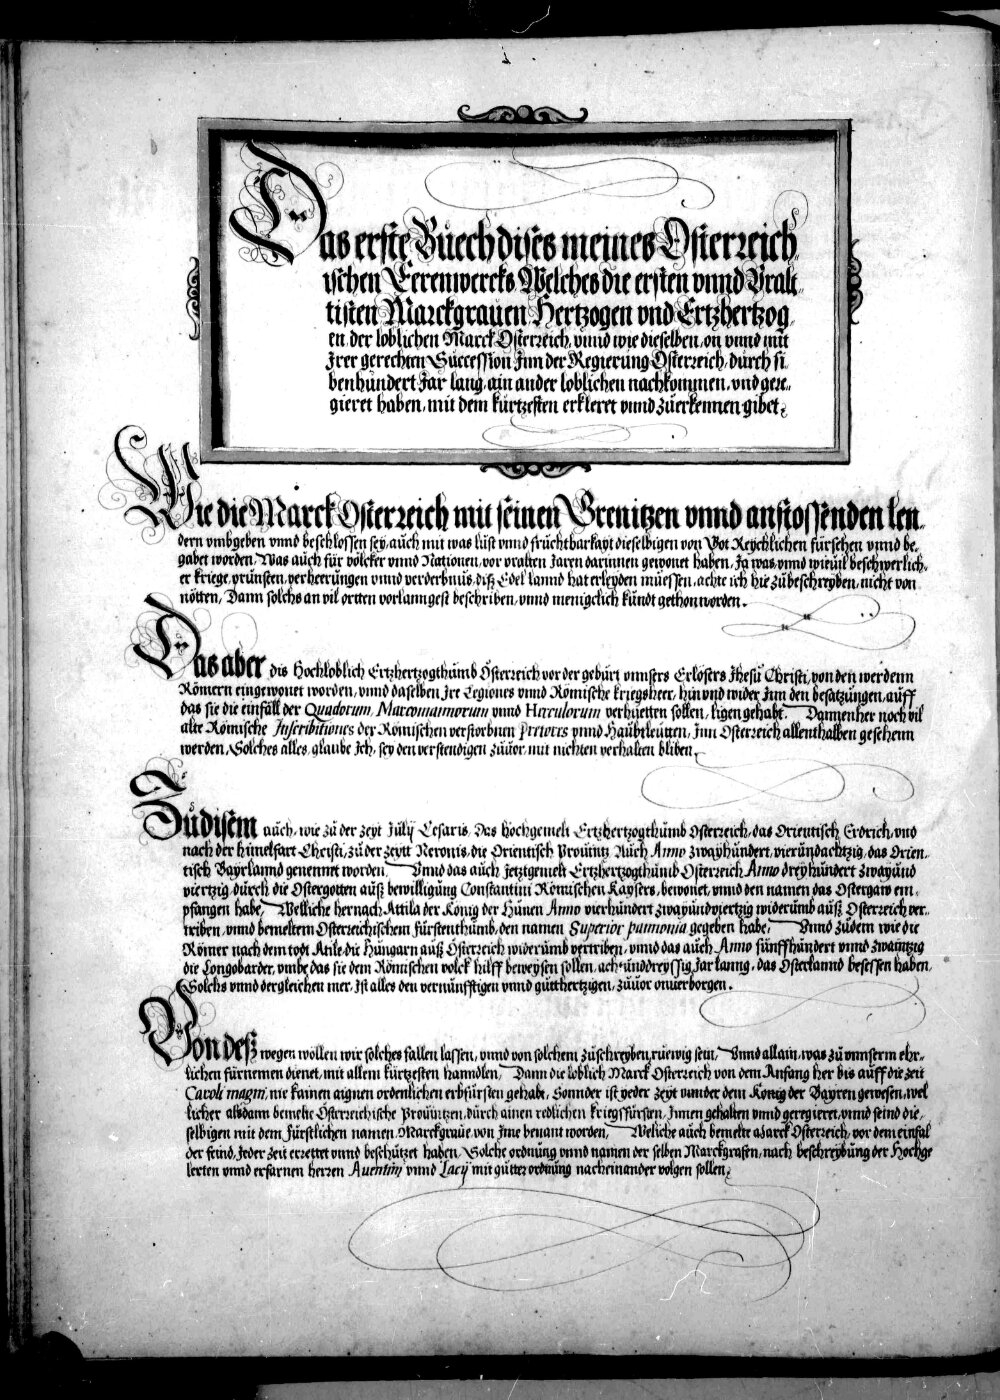 Das erste Buech dises meines Osterreich-
ischen Eerenwercks Welches die ersten vnnd Vralt-
tisten Marckgrauen Hertzogen vnd Ertzhertzog-
en der loblichen Marck Osterreich, vnnd wie dieselben, on vnnd mit
Jrer gerechten Succession Jnn der Regierung Osterreich, durch si-
benhundert Jar lang, ain ander loblichen nachkommen, vnd gere-
gieret haben, mit dem kurtzesten erkleret vnnd zuerkennen gibet.
Wie die Marck Osterreich mit seinen Grenitzen vnnd anstossenden len-
dern vmbgeben vnnd beschlossen sey, auch mit was lust vnnd fruchtbarkayt dieselbigen von Got Reychlichen fürsehen vnnd be-
gabet worden, Was auch für völcker vnnd Nationen, vor vralten Jaren darinnen gewonet haben, Ja was, vnnd wieuil beschwerlich-
er kriege, prünsten, verheerungen vnnd verderbnus, diß Edel lannd hat erleyden müessen, achte ich hie zubeschreyben, nicht von
nötten, Dann solchs an vil ortten vorlanngest beschriben, vnnd menigclich kundt gethon worden.
Das aber dis Hochloblich Ertzhertzogthumb Österreich vor der geburt vnnsers Erlösers Jhesu Christi, von den werdenn
Römern eingewonet worden, vnnd daselben Jre Legiones vnnd Römische kriegsheer, hin vnd wider Jnn den besatzungen, auff
das sie die einfäll der Quadorum, Marcomannorum vnnd Herculorum verhuetten sollen, ligen gehabt. Dannenher noch vil
alte Römische Jnscribtiones der Römischen verstorbnen Pretores vnnd Haubtleutten, Jnn Osterreich allenthalben gesehenn
werden, Solches alles, glaube Jch, sey den verstendigen zuuor, mit nichten verhalten bliben.
Zudisem auch, wie zu der zeyt Julij Cesaris, Das hochgemelt Ertzhertzogthumb Osterreich, das Orientisch Erdrich, vnd
nach der himelfart Christi, zu der zeytt Neronis, die Orientisch Prouintz Auch Anno zwayhundert, vierundachtzig, das Orien-
tisch Bayrlannd genennet worden, Vnnd das auch Jetztgemelt Ertzhertzogthumb Osterreich Anno dreyhundert zwayund
viertzig, durch die Ostergotten auß bewilligung Constantini Römischen Kaysers, bewonet, vnnd den namen das Ostergaw em-
pfangen habe, Welliche hernach Attila der König der Hunen Anno vierhundert zwayundviertzig widerumb auß Osterreich ver-
triben, vnnd bemeltem Osterreichischem fürstenthumb, den namen Superior pannonia gegeben habe, Vnnd zudem wie die
Römer nach dem todt Atile, die Hungarn auß Osterreich widerumb vertriben, vnnd das auch Anno funffhundert vnnd zwaintzig
die Longobarder, vmbe das sie dem Römischen volck hilff beweysen sollen, achtunddreyssig Jar lanng, das Osterlannd besessen haben,
Solchs vnnd dergleichen mer, Jst alles den vernünfftigen vnnd gutthertzigen, zuuor vnuerborgen.
Von deß wegen wöllen wir solches fallen lassen, vnnd von solchem zuschreyben, ruewig sein, Vnnd allain, was zu vnnserm ehr-
lichen fürnemen dienet, mit allem kürtzesten hanndlen, Dann die loblich Marck Osterreich von dem Anfang her bis auff die zeit
Caroli magni, nie kainen aignen ordenlichen erbfürsten gehabt, Sonnder ist yeder zeyt vnnder dem König der Bayren gewesen, wel-
licher alsdann bemelte Österreichische Prouintzen, durch ainen redlichen kriegsfürsten, Jnnen gehalten vnnd geregieret, vnnd seind die-
selbigen mit dem fürstlichen namen Marckgraue von Jme benant worden, Weliche auch bemelte Marck Osterreich, vor dem einfal
der feind, Jeder zeit errettet vnnd beschützet haben, Solche ordnung vnnd namen der selben Marckgrafen, nach beschreybung der Hochge-
lerten vnnd erfarnen herren Auentini vnnd Lacij mit gutter ordnung nacheinander volgen sollen.